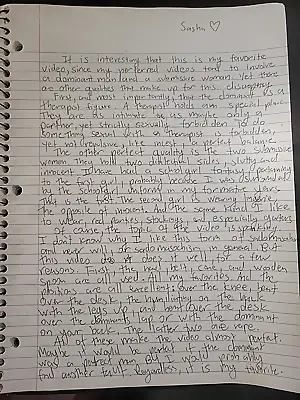 Sasha ♡
It is interesting that this is my favorite
video, since my preferred videos tend to involve
a dominant man and a submissive woman. Yet there
are other qualities that make up for this
First, and most importantly, that the dominant is a
therapist figure. A therapist holds a special place.
They are as intimate as maybe only a
partner, yet still sexually forbidden.
Something sexual with a therapist is forbidden,
yet not
The other perfect quality is the two submissive
women. They hold two different sides, slutty and
innocent. I have had a schoolgirl fantasy pertaining
to the first girl, probably because I was
in the schoolgirl uniform in my formative years.
That is the first. The second girl is wearing lingerie,
the opposite of innocent. And the same kind I like
to wear: red panties, stockings, and especially garters.
Of course, the topic of the video is spanking.
I don't know why I like this form of sadomasochism
and never will, or sadomasochism in general. But
this video does it well for a few
reasons. First, the hand, belt, cane, and wooden
spoon are all used. All my favorites. And the
positions are all excellent: over the knee, bent
over the desk, the humiliating on the back
with the legs up, and bent over the desk
over the dominant's lap or with the dominant
on your back. The latter two are rare.
All of these make the video almost perfect.
Maybe it would be perfect if the dominant
was a perfect man. But I would probably
find another fault. Regardless, it is my favorite.